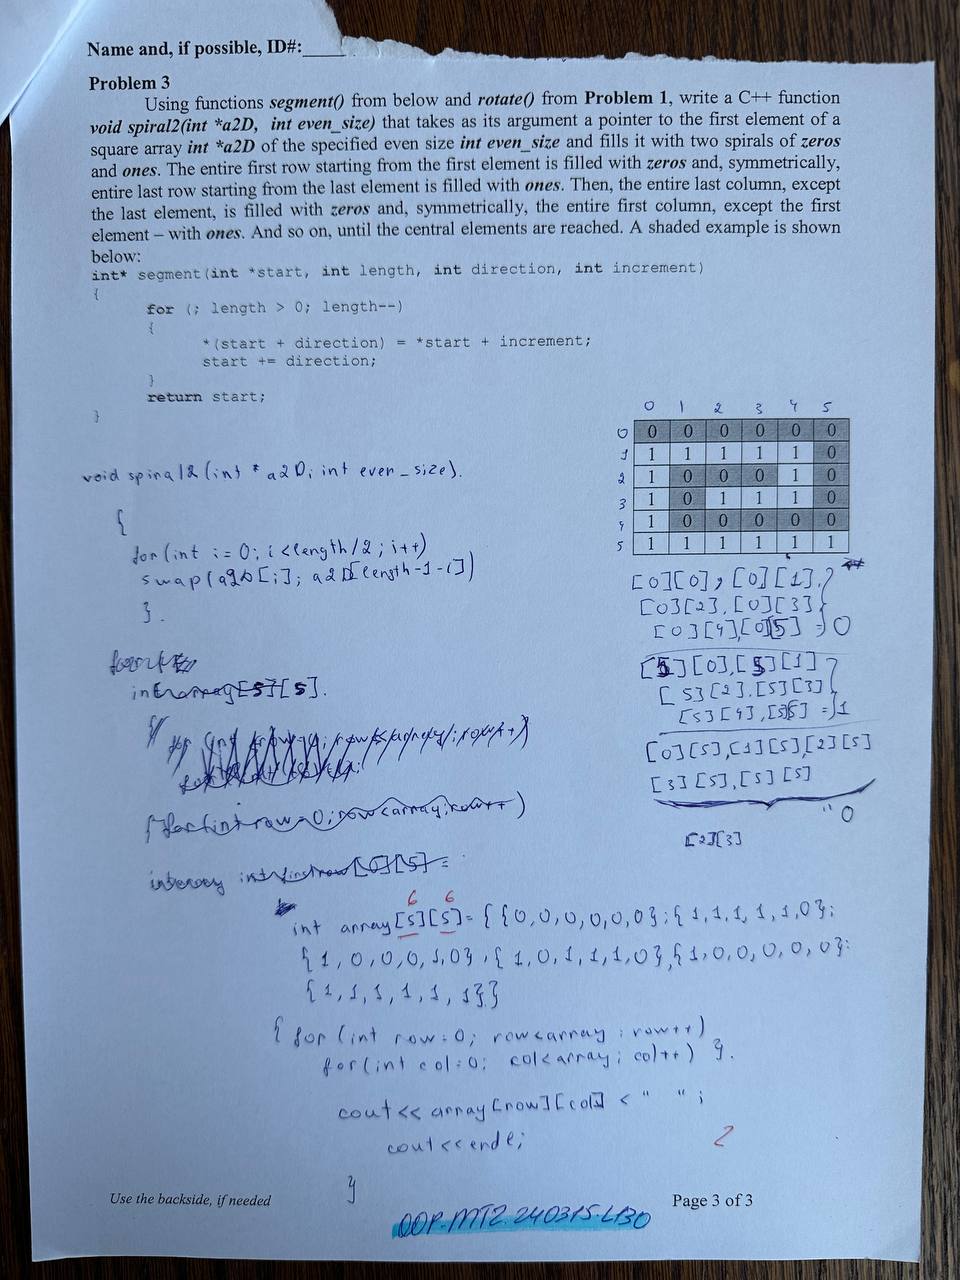 Name and, if possible, ID#:______
Problem 3
Using functions segment() from below and rotate() from Problem 1, write a C++ function
void spiral2(int *a2D, int even_size) that takes as its argument a pointer to the first element of a
square array int *a2D of the specified even size int even_size and fills it with two spirals of zeros
and ones. The entire first row starting from the first element is filled with zeros and, symmetrically,
entire last row starting from the last element is filled with ones. Then, the entire last column, except
the last element, is filled with zeros and, symmetrically, the entire first column, except the first
element – with ones. And so on, until the central elements are reached. A shaded example is shown
below:
int* segment(int *start, int length, int direction, int increment)
{
for (; length > 0; length--)
{
*(start + direction) = *start + increment;
start += direction;
}
return start;
}
0 1 2 3 4 5
0 0 0 0 0 0 0
1 1 1 1 1 1 0
2 1 0 0 0 1 0
3 1 0 1 1 1 0
4 1 0 0 0 0 0
5 1 1 1 1 1 1
void spiral2(int * a2D; int even_size).
{
for(int i=0; i<length/2; i++)
swap(a2D[i]; a2D[length-1-i])
}.
int array[5][5].
[for(int row=0; row<array; row++)
[0][0], [0][1].
[0][2], [0][3]
[0][4],[0][5] = 0
[5][0],[5][1]
[5][2].[5][3]
[5][4],[5][5] = 1
[0][5],[1][5],[2][5]
[3][5],[5][5]
" 0
[2][3]
6 6
int array[5][5]= { {0,0,0,0,0,0};{1,1,1,1,1,0};
{1,0,0,0,1,0},{1,0,1,1,1,0},{1,0,0,0,0,0}:
{1,1,1,1,1,1}}
{ for (int row=0; row<array; row++)
for(int col=0; col<array; col++) }.
cout<< array[row][col] < " " ;
cout<<endl;
2
}
Use the backside, if needed
Page 3 of 3
OOP.MT2.240315.L130